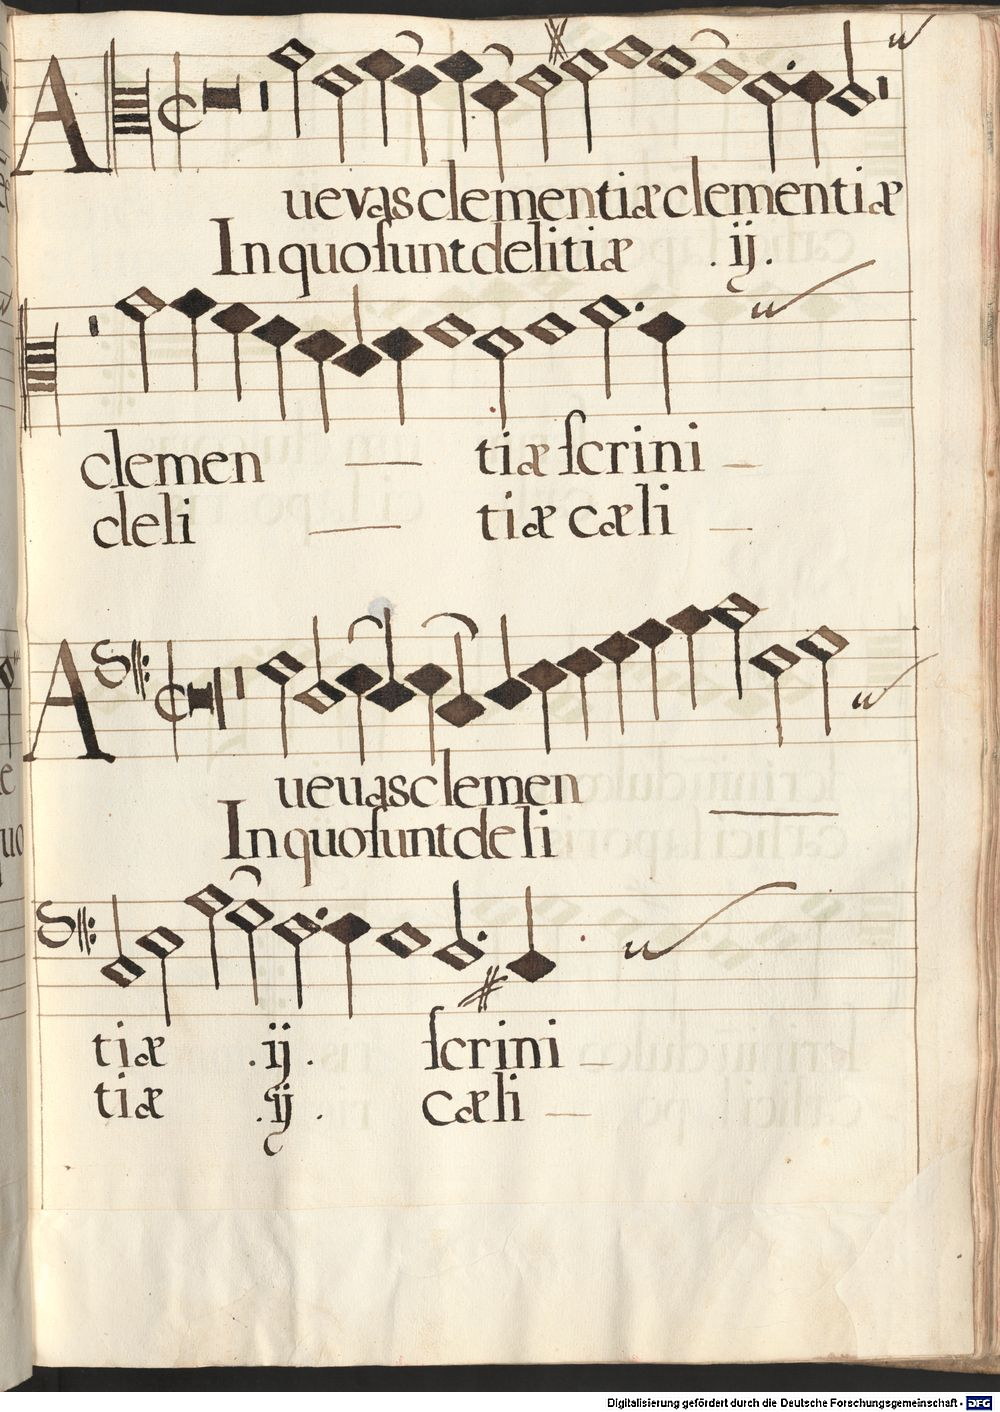 A
ue vas clementiæ clementiæ
In quo ſunt delitiæ .ij.
clemen tiæ ſcrini
deli tiæ cæli
A
ue uas clemen
In quo ſunt deli
tiæ .ij. ſcrini
tiæ .ij. cæli
Digitalisierung gefördert durch die Deutsche Forschungsgemeinschaft - DFG